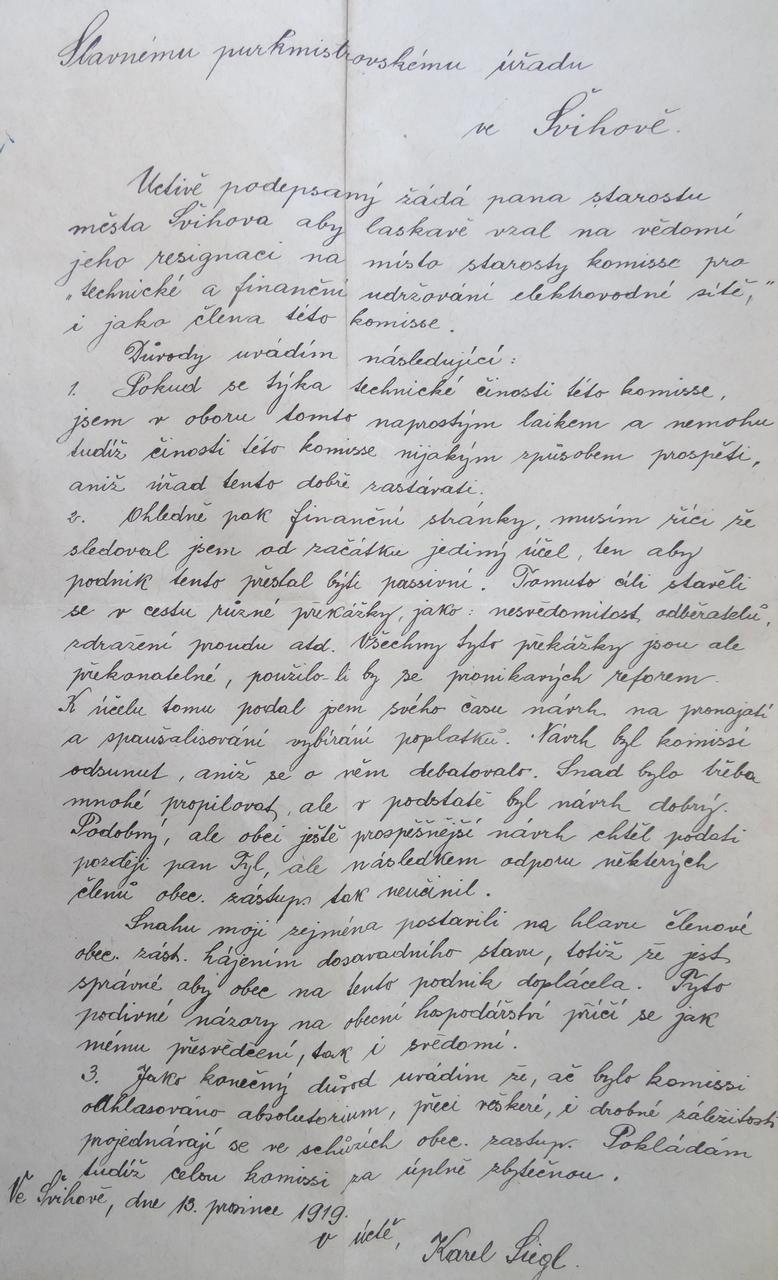 Slavnému purkmistrovskému úřadu
ve Švihově.
Uctivě podepsaný žádá pana starostu
města Švihova aby laskavě vzal na vědomí
jeho resignaci na místo starosty komisse pro
"technické a finanční udržování elektrovodné sítě,"
i jako člena této komisse.
Důvody uvádím následující:
1. Pokud se týka technické činosti této komisse,
jsem v oboru tomto naprostým laikem a nemohu
tudíž činosti této komisse nijakým způsobem prospěti,
aniž úřad tento dobře zastávati.
2. Ohledně pak finanční stránky, musím říci že
sledoval jsem od začátku jediný účel, ten aby
podnik tento přestal býti passivní. Tomuto cíli stavěli
se v cestu různé překážky, jako: nesvědomitost odběratelů,
zdražení proudu atd. Všechny tyto překážky jsou ale
překonatelné, použilo-li by se pronikavých reforem.
K účelu tomu podal jsem svého času návrh na pronajatí
a spaušalisování vybírání poplatků. Návrh byl komissí
odsunut, aniž se o něm debatovalo. Snad bylo třeba
mnohé propilovat, ale v podstatě byl návrh dobrý.
Podobný, ale obci ještě prospěšnější návrh chtěl podati
později pan Tyl, ale následkem odporu některých
členů obec. zástup. tak neučinil.
Snahu moji zejména postavili na hlavu členové
obec. zást. hájením dosavadního stavu, totiž že jest
správné aby obec na tento podnik doplácela. Tyto
podivné názory na obecní hospodářství příčí se jak
mému přesvědčení, tak i svědomí.
3. Jako konečný důvod uvádím že, ač bylo komissi
odhlasováno absolutorium, přeci veškeré, i drobné záležitosti
projednávají se ve schůzích obec. zastup. Pokládám
tudíž celou komissi za úplně zbytečnou.
Ve Švihově, dne 13. prosince 1919.
v úctě,
Karel Siegl.